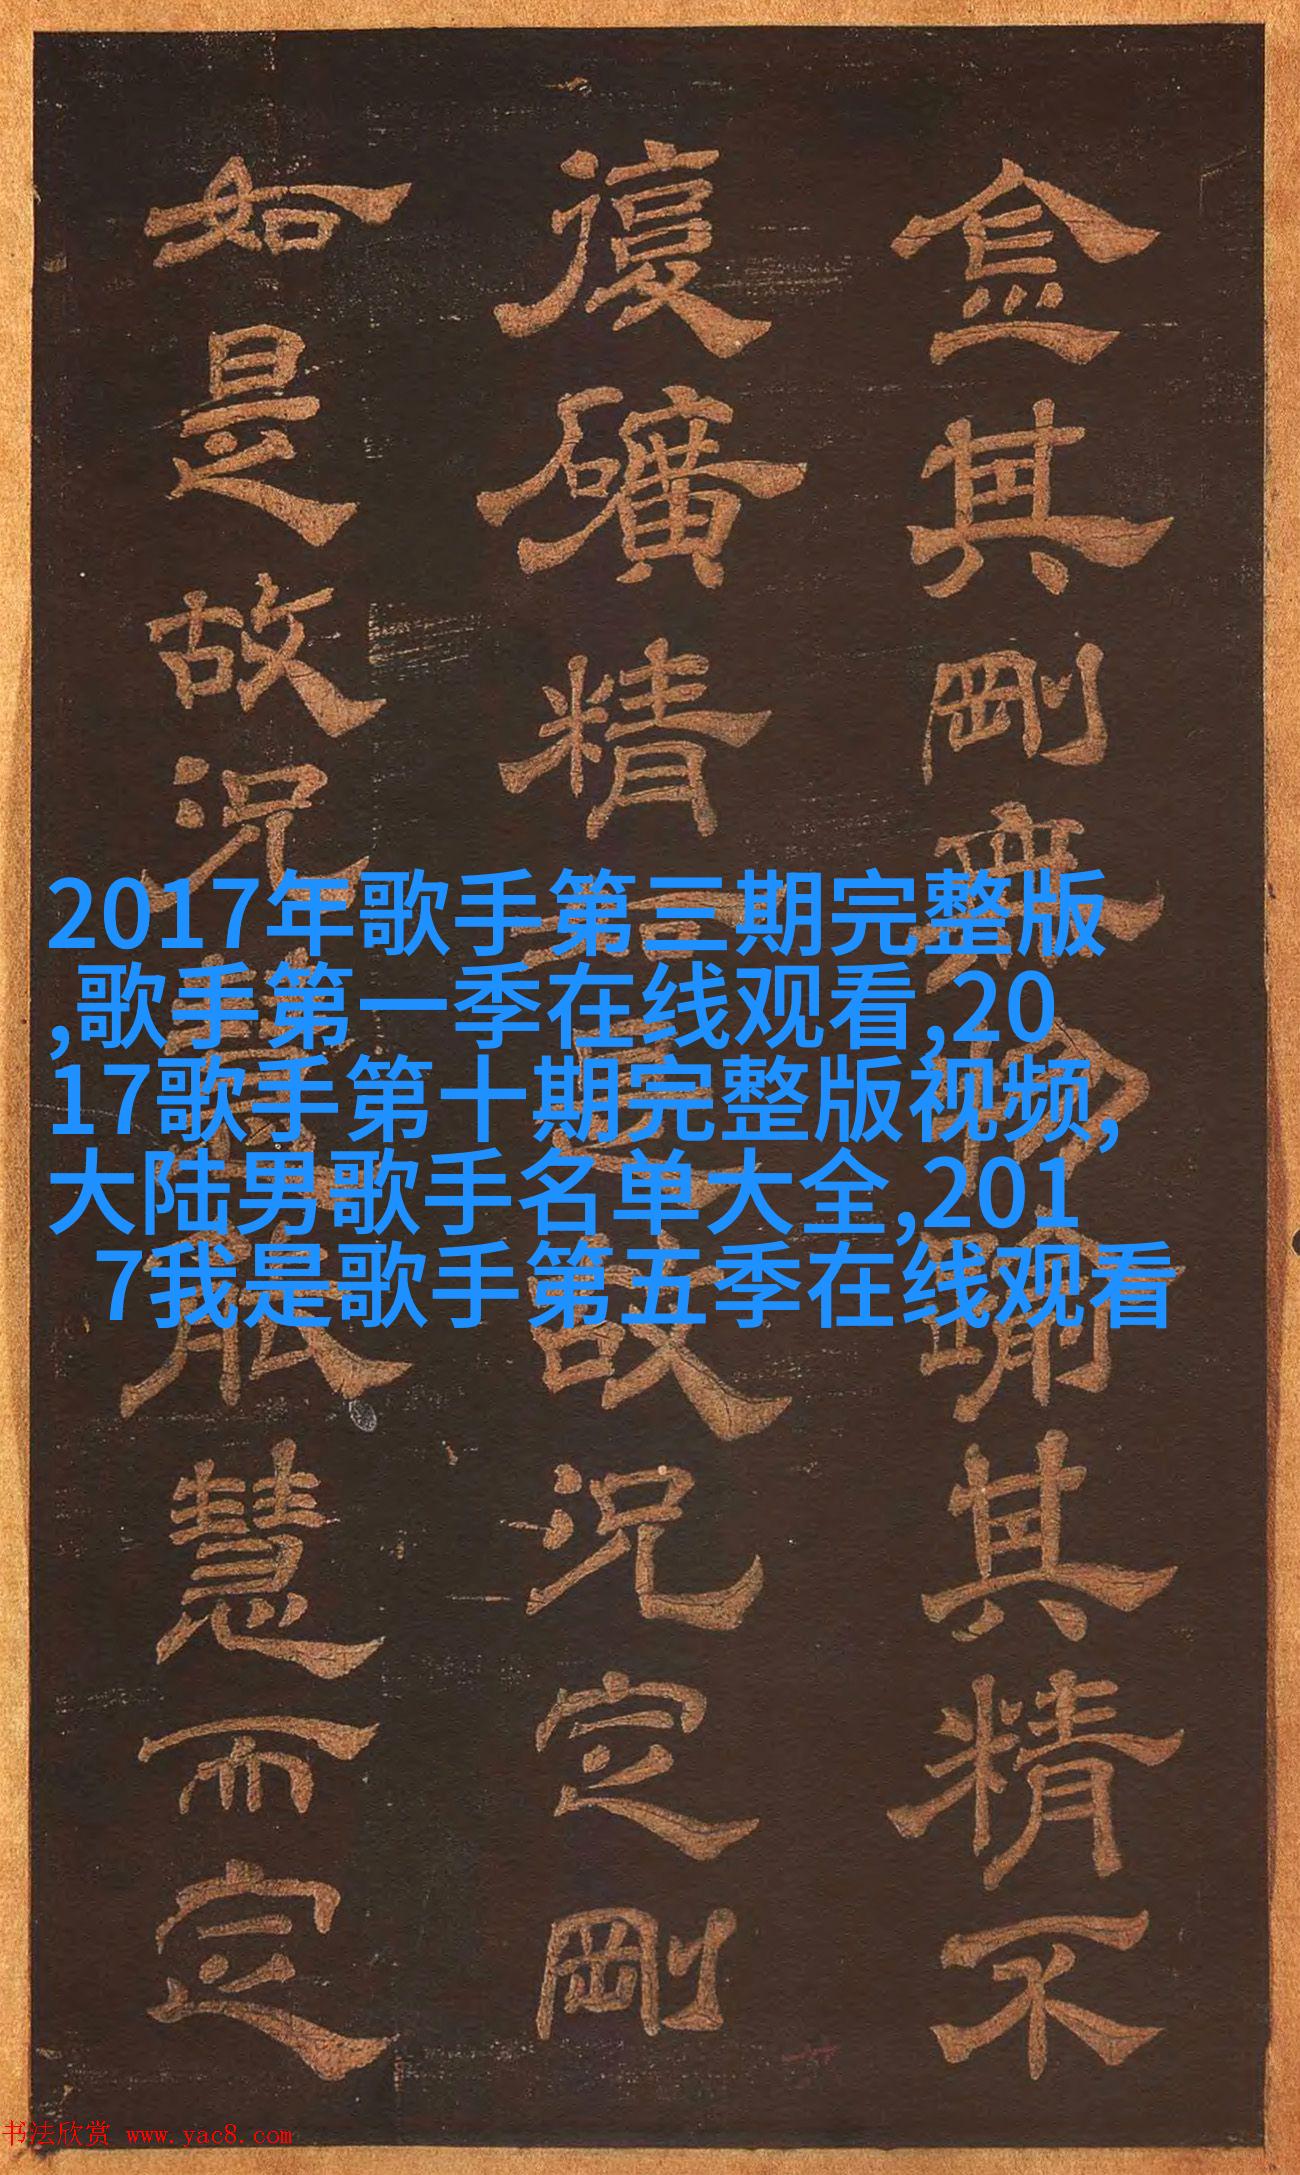 金其剛無物踰其精不
復礦精故況定剛
如是故況慧而定
2017年歌手第三期完整版
,歌手第一季在线观看,20
17歌手第十期完整版视频,
大陆男歌手名单大全,201
7我是歌手第五季在线观看
书法欣赏 www.yac8.com